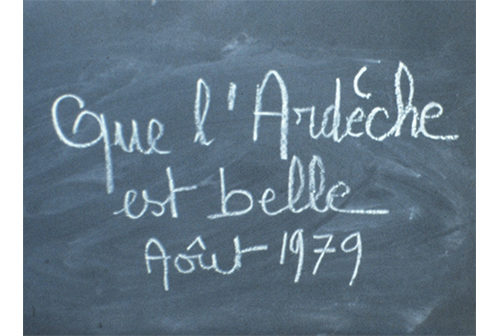 Que l'Ardèche
est belle
Août 1979